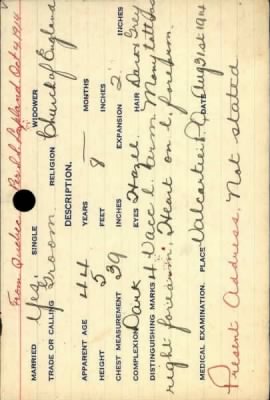 From Quebec Per S.S. Lapland Oct 4, 1914
MARRIED Yes, SINGLE WIDOWER
TRADE OR CALLING Groom RELIGION Church of England
DESCRIPTION.
APPARENT AGE 44 YEARS — MONTHS
HEIGHT 5 FEET 8 INCHES
CHEST MEASUREMENT 39 INCHES EXPANSION 2 INCHES
COMPLEXION Dark EYES Hazel HAIR Dark Grey
DISTINGUISHING MARKS 4 Vacc l. arm Many tattoos
right forearm. Heart on l. forearm.
MEDICAL EXAMINATION. PLACE Valcartier P.Q. DATE Aug 31st 1914
Present Address, Not stated